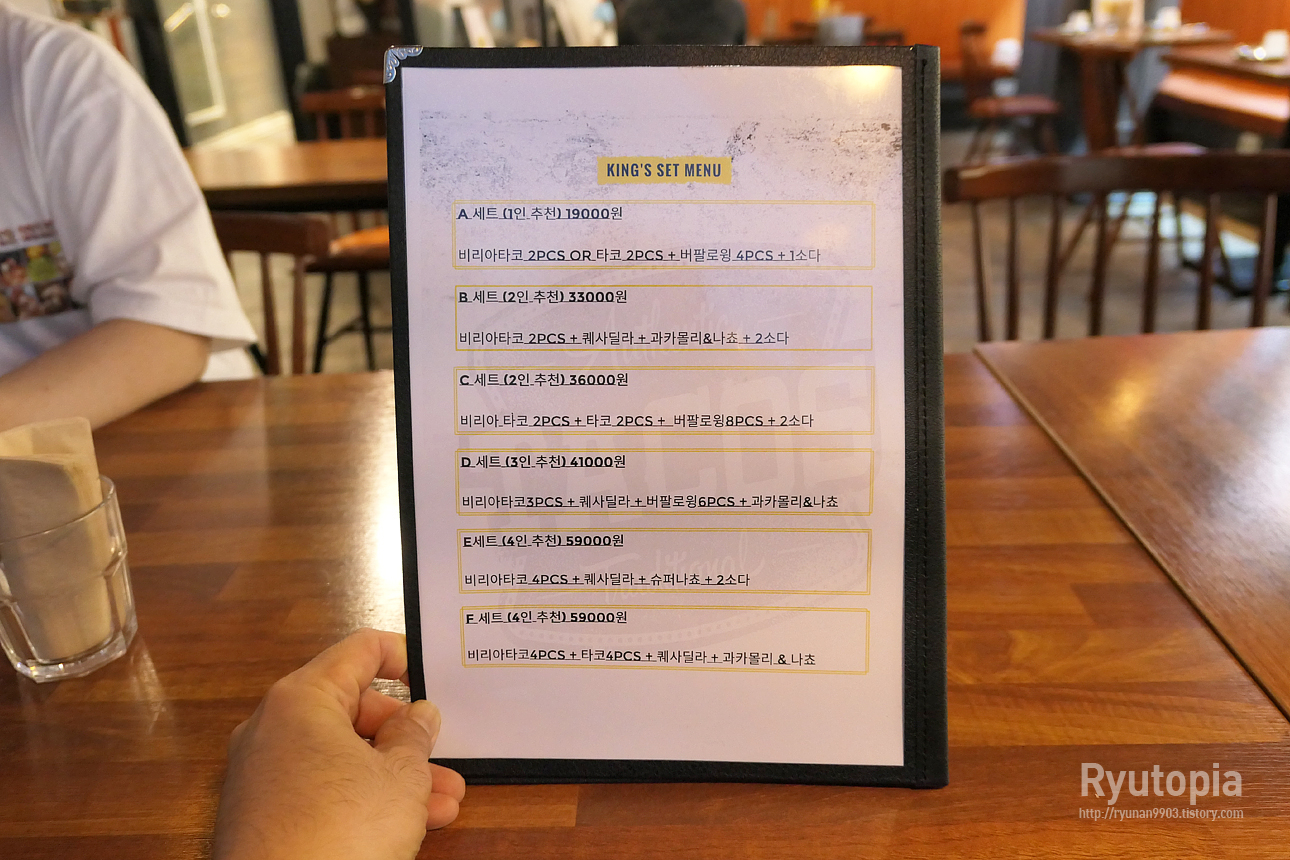 KING'S SET MENU
A 세트 (1인 추천) 19000원
비리아타코 2PCS OR 타코 2PCS + 버팔로윙 4PCS + 1소다
B 세트 (2인 추천) 33000원
비리아타코 2PCS + 퀘사딜라 + 과카몰리&나쵸 + 2소다
C 세트 (2인 추천) 36000원
비리아 타코 2PCS + 타코 2PCS + 버팔로윙8PCS + 2소다
D 세트 (3인 추천) 41000원
비리아타코3PCS + 퀘사딜라 + 버팔로윙6PCS + 과카몰리&나쵸
E세트 (4인 추천) 59000원
비리아타코 4PCS + 퀘사딜라 + 슈퍼나쵸 + 2소다
F 세트 (4인 추천) 59000원
비리아타코4PCS + 타코4PCS + 퀘사딜라 + 과카몰리 & 나쵸
TACOS
Traditional
Ryutopia
http://ryunan9903.tistory.com